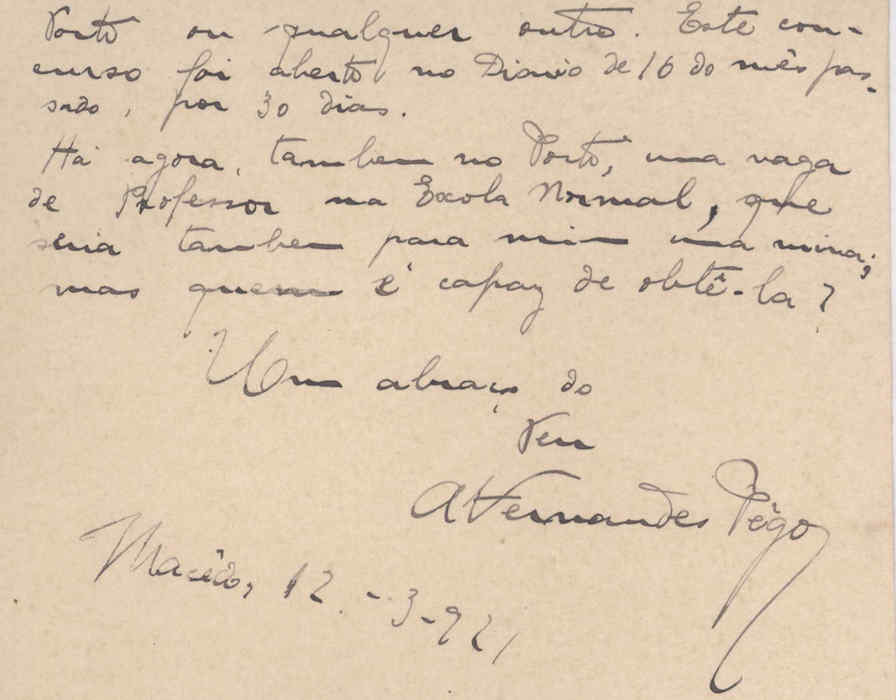 Porto ou qualquer outro. Este con-
curso foi aberto no Diario de 16 do mês pas-
sado, por 30 dias.
Há agora, tambem no Porto, uma vaga
de Professor na Escola Normal, que
seria tambem para mim uma mina;
mas quem é capaz de obtê-la?
Um abraço do
Teu
AFernandes Pêgo
Macêdo, 12-3-921